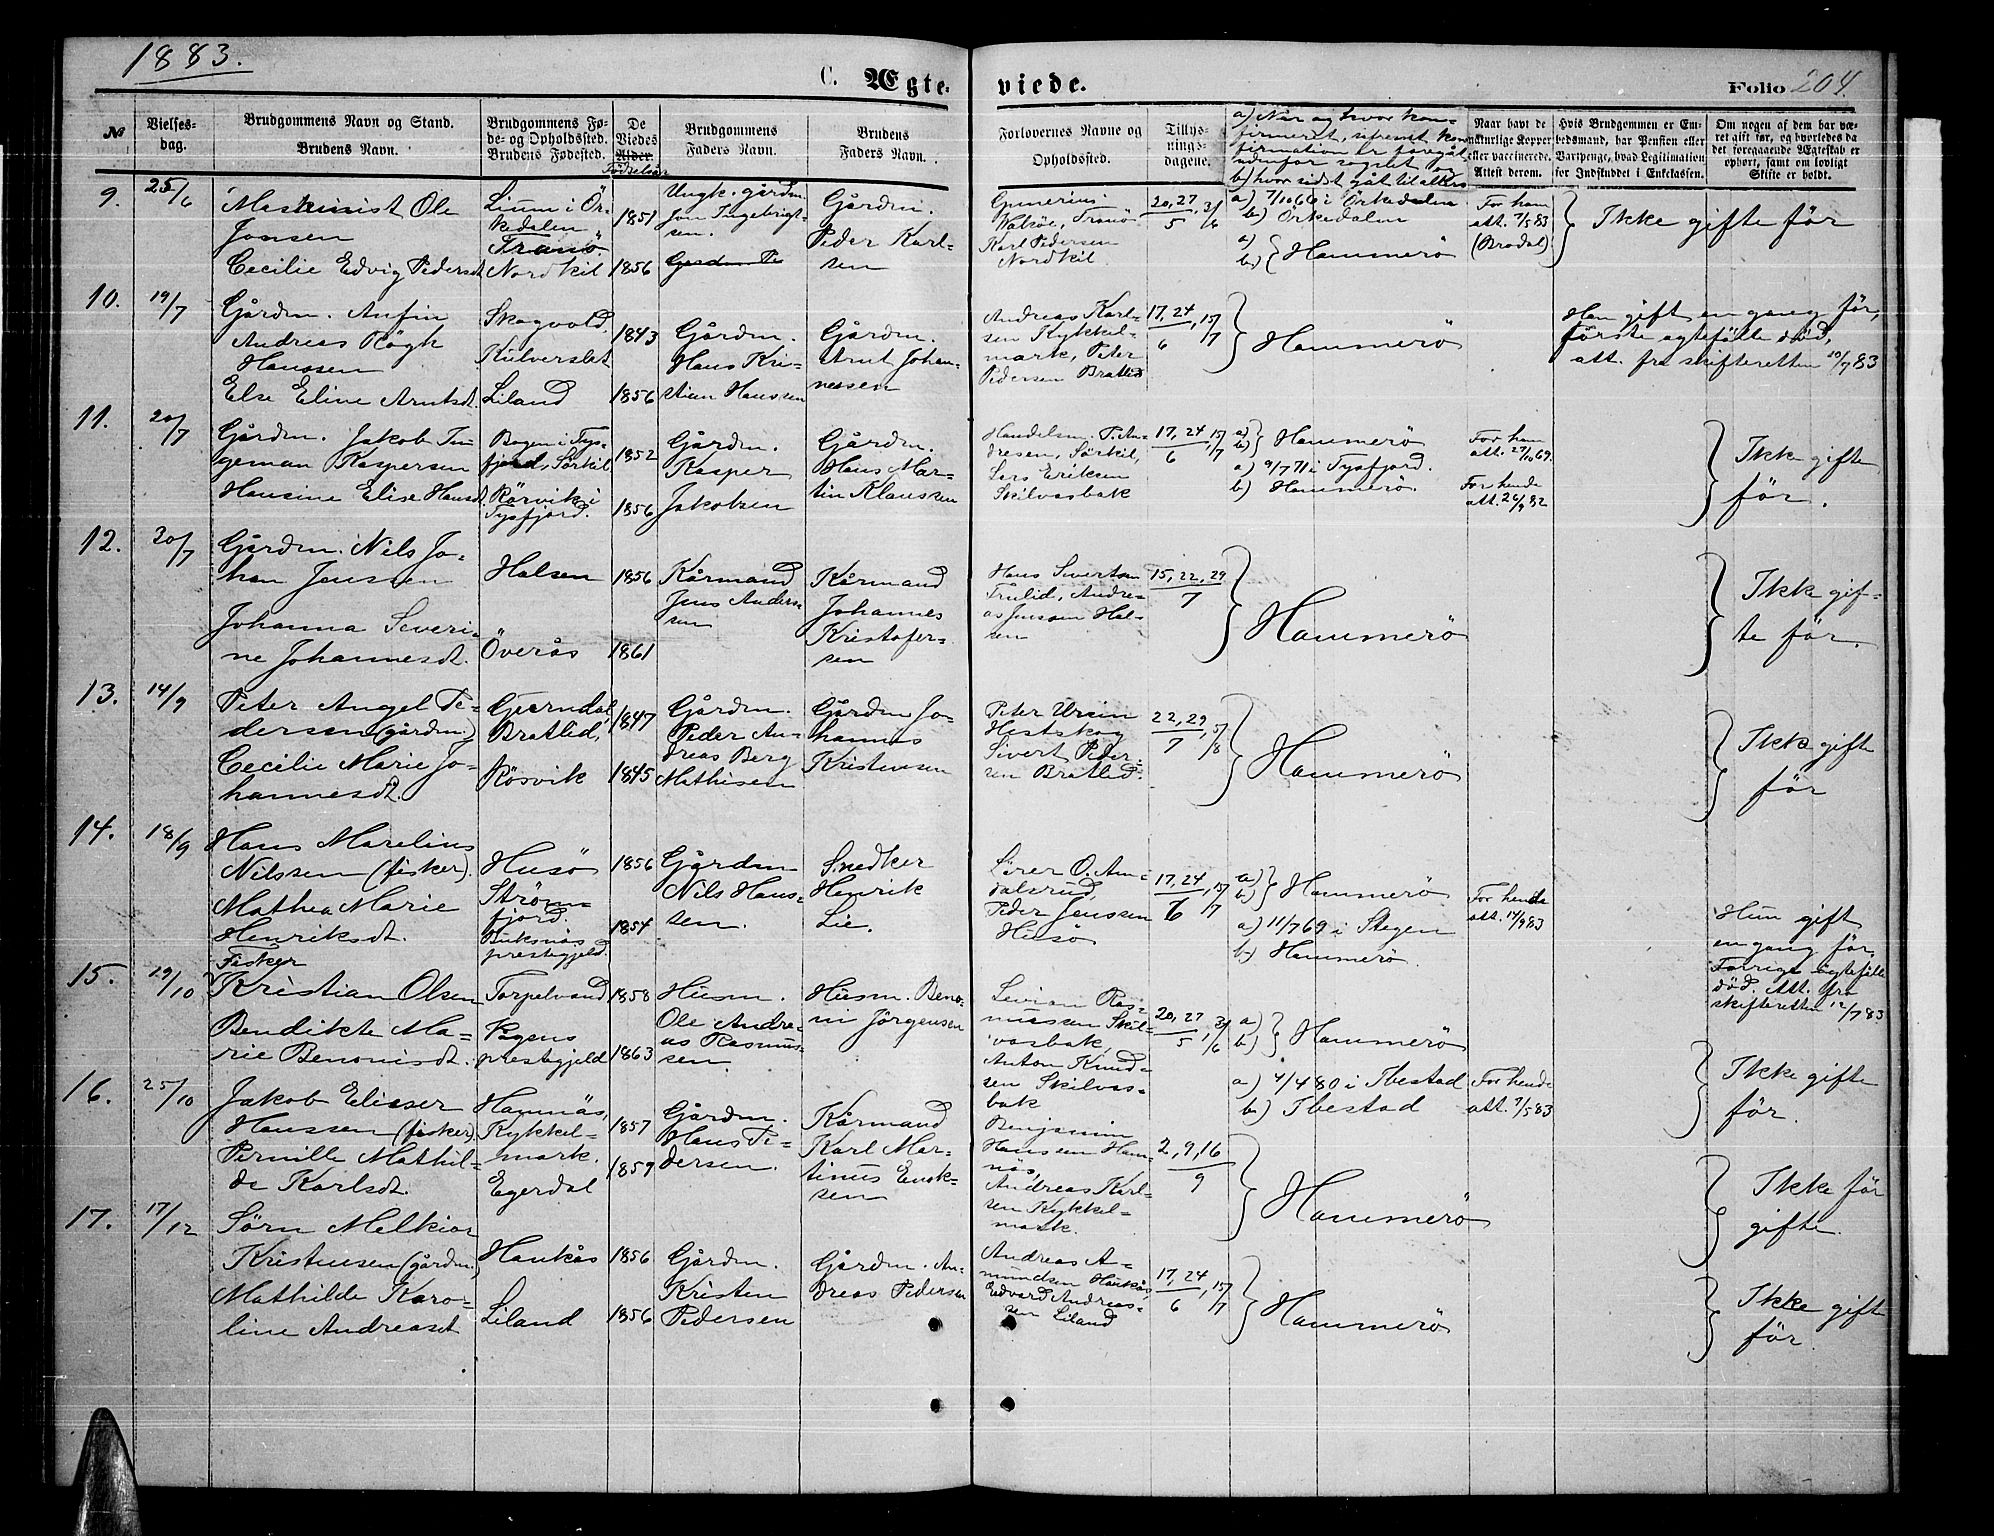 1883.
C. Ægte-
viede.
Folio 204.
№
Vielses-
dag.
Brudgommens Navn og Stand.
Brudens Navn.
Brudgommens Fø-
de- og Opholdssted.
Brudens Fødested.
De
Viedes
Alder.
Fødselsår
Brudgommens
Faders Navn.
Brudens
Faders Navn.
Forlovernes Navne og
Opholdssted.
Tillys-
nings-
dagene.
a) Når og hvor kon-
firmeret, såfremt kon
firmation er foregåt
udenfor sognet og
b) hvor sidst gåt til alters
Naar havt de
naturlige Kopper
eller vaccinerede.
Attest derom.
Hvis Brudgommen er Em-
bedsmand, har Pension eller
Vartpenge, hvad Legitimation
for Indskuddet i Enkekassen.
Om nogen af dem har væ-
ret gift før, og hvorledes da
det foregaaende Ægteskab er
ophørt, samt om lovligt
Skifte er holdt.
9.
25/6
Maskinist Ole
Jonsen
Cecilie Edvig Pedersdt
Lium i Ör-
kedalen
Tranö.
Nordkil
1851
1856
Ungk. gårdm.
Jon Ingebrigt-
sen.
Gårdm. Pe
Gårdm.
Peder Karl-
sen
Gunerius
Valsöe, Tranö
Karl Pedersen
Nordkil
20, 27/5, 3/6
a) 7/10 66 i Örkedalen
b) Örkedalen
a)
b) Hammerö
For ham
att. 7/5 83
(Brodal)
Ikke gifte för
10.
19/7
Gårdm. Anfin
Andreas Rögh
Hanssen
Else Eline Arntsdt.
Skogvold,
Kulverslet
Liland
1843
1856
Gårdm.
Hans Kri-
stian Hanssen
Gårdm.
Arnt Johan-
nessen
Andreas Karl-
sen Kykkel-
mark, Peter
Pedersen Bratlid
17, 24/6, 15/7
Hammerö
Han gift en gang för,
förste egtefälle död,
att. fra skifteretten 10/7 83
11.
20/7
Gårdm. Jakob In-
geman Kaspersen
Hansine Elise Hansdt.
Bogen i Tys-
fjord, Sörkil
Rörvik i
Tysfjord.
1852
1856
Gårdm.
Kasper
Jakobsen
Gårdm.
Hans Mar-
tin Klaussen
Handelsm. P. An-
dresen, Sörkil,
Lars Eriksen
Skilvasbak
17, 24/6, 15/7
a)
b) Hammerö
a) 9/7 71 i Tysfjord.
b) Hammerö.
For ham
att. 27/10 69.
For hende
att. 26/9 82
Ikke gifte
för.
12.
30/7
Gårdm. Nils Jo-
han Jenssen
Johanna Severi-
ne Johannesdt.
Halsen
Överås
1856
1861
Kårmand
Jens Anders-
sen
Kårmand
Johannes
Kristofer-
sen
Hans Sivertsen
Trulid, Andre-
as Jensen Hal-
sen
15, 22, 29/7
Hammerö
Ikke gif-
te för.
13.
14/9
Peter Angel Pe-
dersen (gårdm.)
Cecilie Marie Jo-
hannesdt.
Bratlid,
Rösvik
1847
1845
Gårdm.
Peder An-
dreas Berg
Mathisen
Gårdm. Jo-
hannes
Kristensen
Peter Ursin
Hestskog
Sivert Peder-
sen Bratlid.
22, 29/7, 5/8
Hammerö
Ikke gifte
för
14.
18/9
Hans Marelius
Nilssen (fisker).
Mathea Marie
Henriksdt.
Husö
Ström-
fjord.
Buksnäs
prestegjeld.
1856
1854
Gårdm
Nils Hans-
sen.
Snedker
Henrik
Lie.
Lärer O. Am-
dalsrud,
Peder Jenssen
Husö
17, 24/6, 15/7
a)
b) Hammerö
a) 11/7 69 i Stegen
b) Hammerö.
For hende
att. 14/9 83
Hun gift
en gang för,
Forrige egtefälle
död. Att. fra
skifteretten 12/7 83
15.
29/10
Fisker
Kristian Olsen
Bendikte Ma-
rie Benonisdt.
Torpelvand
prestegjeld
1858
1863
Husm.
Ole Andre-
as Rasmus-
sen.
Husm. Beno-
ni Jörgensen
Ras-
mussen Skil-
vasbak,
Anton Knud-
sen Skilvas-
bak
20, 27/5, 3/6
a)
b) Hammerö
a) 4/4 80 i Ibestad
b) Ibestad
For hende
att. 7/5 83
Ikke gifte
för.
16.
25/10
Jakob Elieser
Hanssen (fisker)
Pernille Mathil-
de Karlsdt.
Hamnäs,
Kykkel-
mark.
Egerdal
1857
1859
Gårdm.
Hans Pe-
dersen.
Kårmand
Karl Mar-
tinus Enok-
sen
Benjamin
Hansen Ham-
näs,
Andreas Karl-
sen Kykkel-
mark.
2, 9, 16/9
Hammerö
Ikke för
gifte.
17.
17/12
Sörn Melkior
Kristensen (gårdm.)
Mathilde Karo-
line Andreasdt
Haukås
Liland
1856
1856
Gårdm.
Kristen
Pedersen
Gårdm. An-
dreas Pedersen
Andreas A-
mundsen Haukås,
Edvard Andreas-
sen Liland
17, 24/6, 15/7
Hammerö
Ikke gifte
för.